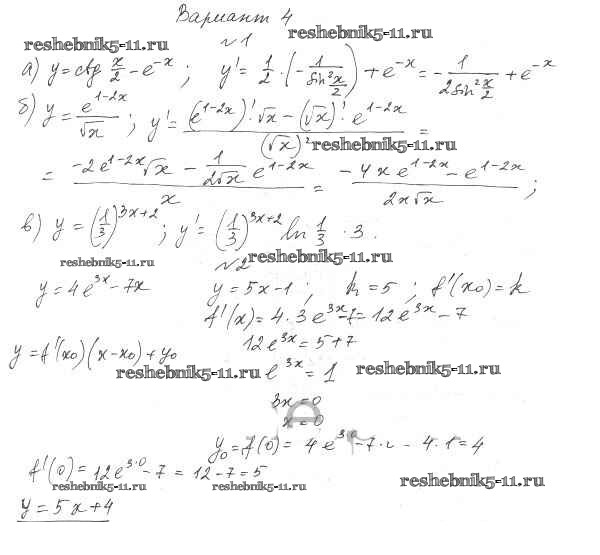 Вариант 4
reshebnik5-11.ru
№1
reshebnik5-11.ru
а) y = ctg x/2 - e^{-x} ; y' = 1/2 · (-1/sin² x/2) + e^{-x} = -1/(2 sin² x/2) + e^{-x}
б) y = e^{1-2x}/√x ; y' = ((e^{1-2x})' √x - (√x)' e^{1-2x})/(√x)² =
reshebnik5-11.ru
= (-2e^{1-2x}√x - 1/(2√x) e^{1-2x})/x = (-4xe^{1-2x} - e^{1-2x})/(2x√x) ;
в) y = (1/3)^{3x+2} ; y' = (1/3)^{3x+2} ln 1/3 · 3.
reshebnik5-11.ru
№2
reshebnik5-11.ru
y = 4e^{3x} - 7x y = 5x - 1 ; k = 5 ; f'(x₀) = k
f'(x) = 4 · 3e^{3x} - 7 = 12e^{3x} - 7
y = f'(x₀)(x - x₀) + y₀ 12e^{3x} = 5 + 7
reshebnik5-11.ru
e^{3x} = 1
reshebnik5-11.ru
3x = 0
x = 0
y₀ = f(0) = 4e^{3·0} - 7 · - 4 · 1 = 4
f'(0) = 12e^{3·0} - 7 = 12 - 7 = 5
reshebnik5-11.ru
reshebnik5-11.ru
reshebnik5-11.ru
y = 5x + 4